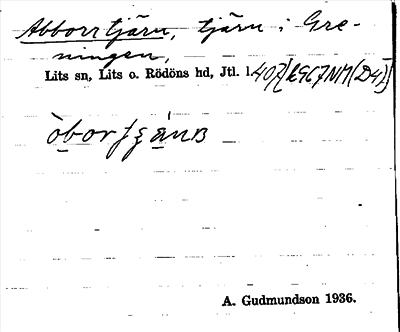 Abborrtjärn, tjärn i Gre-
ningen,
Lits sn, Lits o. Rödöns hd, Jtl. l.
òborʃʒánB
A. Gudmundson 1936.